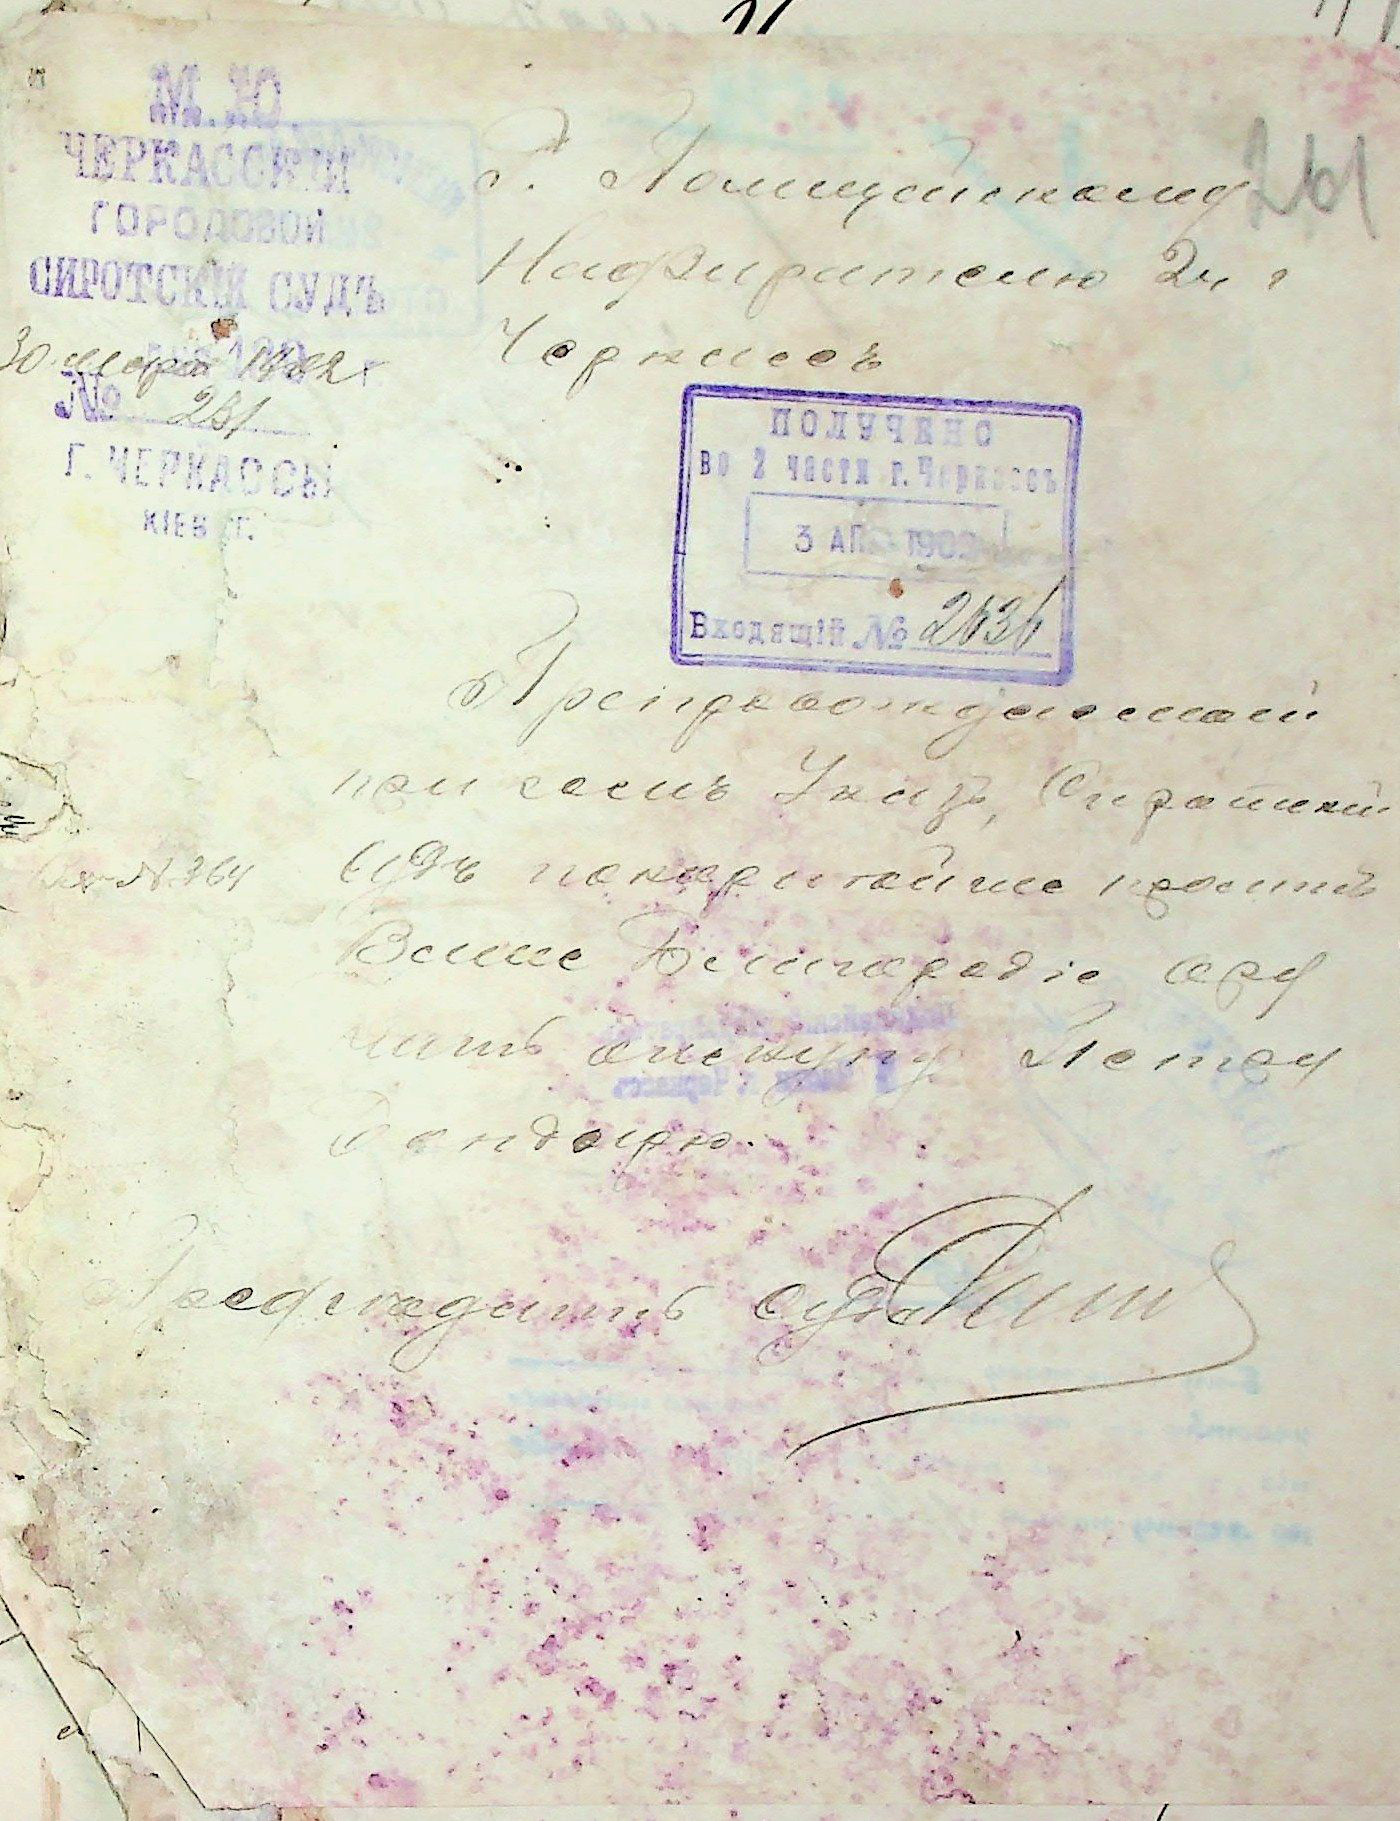 М.Ю.
ЧЕРКАССКІЙ
ГОРОДОВОЙ
СИРОТСКІЙ СУДЪ
30 марта 1902 г.
№ 251
Г. ЧЕРКАССЫ
КІЕВ. Г.
241
Г. Полицейскому
Надзирателю 2 ч г
Черкассъ
ПОЛУЧЕНО
во 2 части г. Черкассъ
3 АПР 1902
Входящій № 2636
Препровождаемый
при семъ Указъ, Сиротскій
№ 364
Судъ покорнѣйше проситъ
Ваше Благородіе вру
чить опекуну Петру
Бондарю.
Предсѣдатель суда